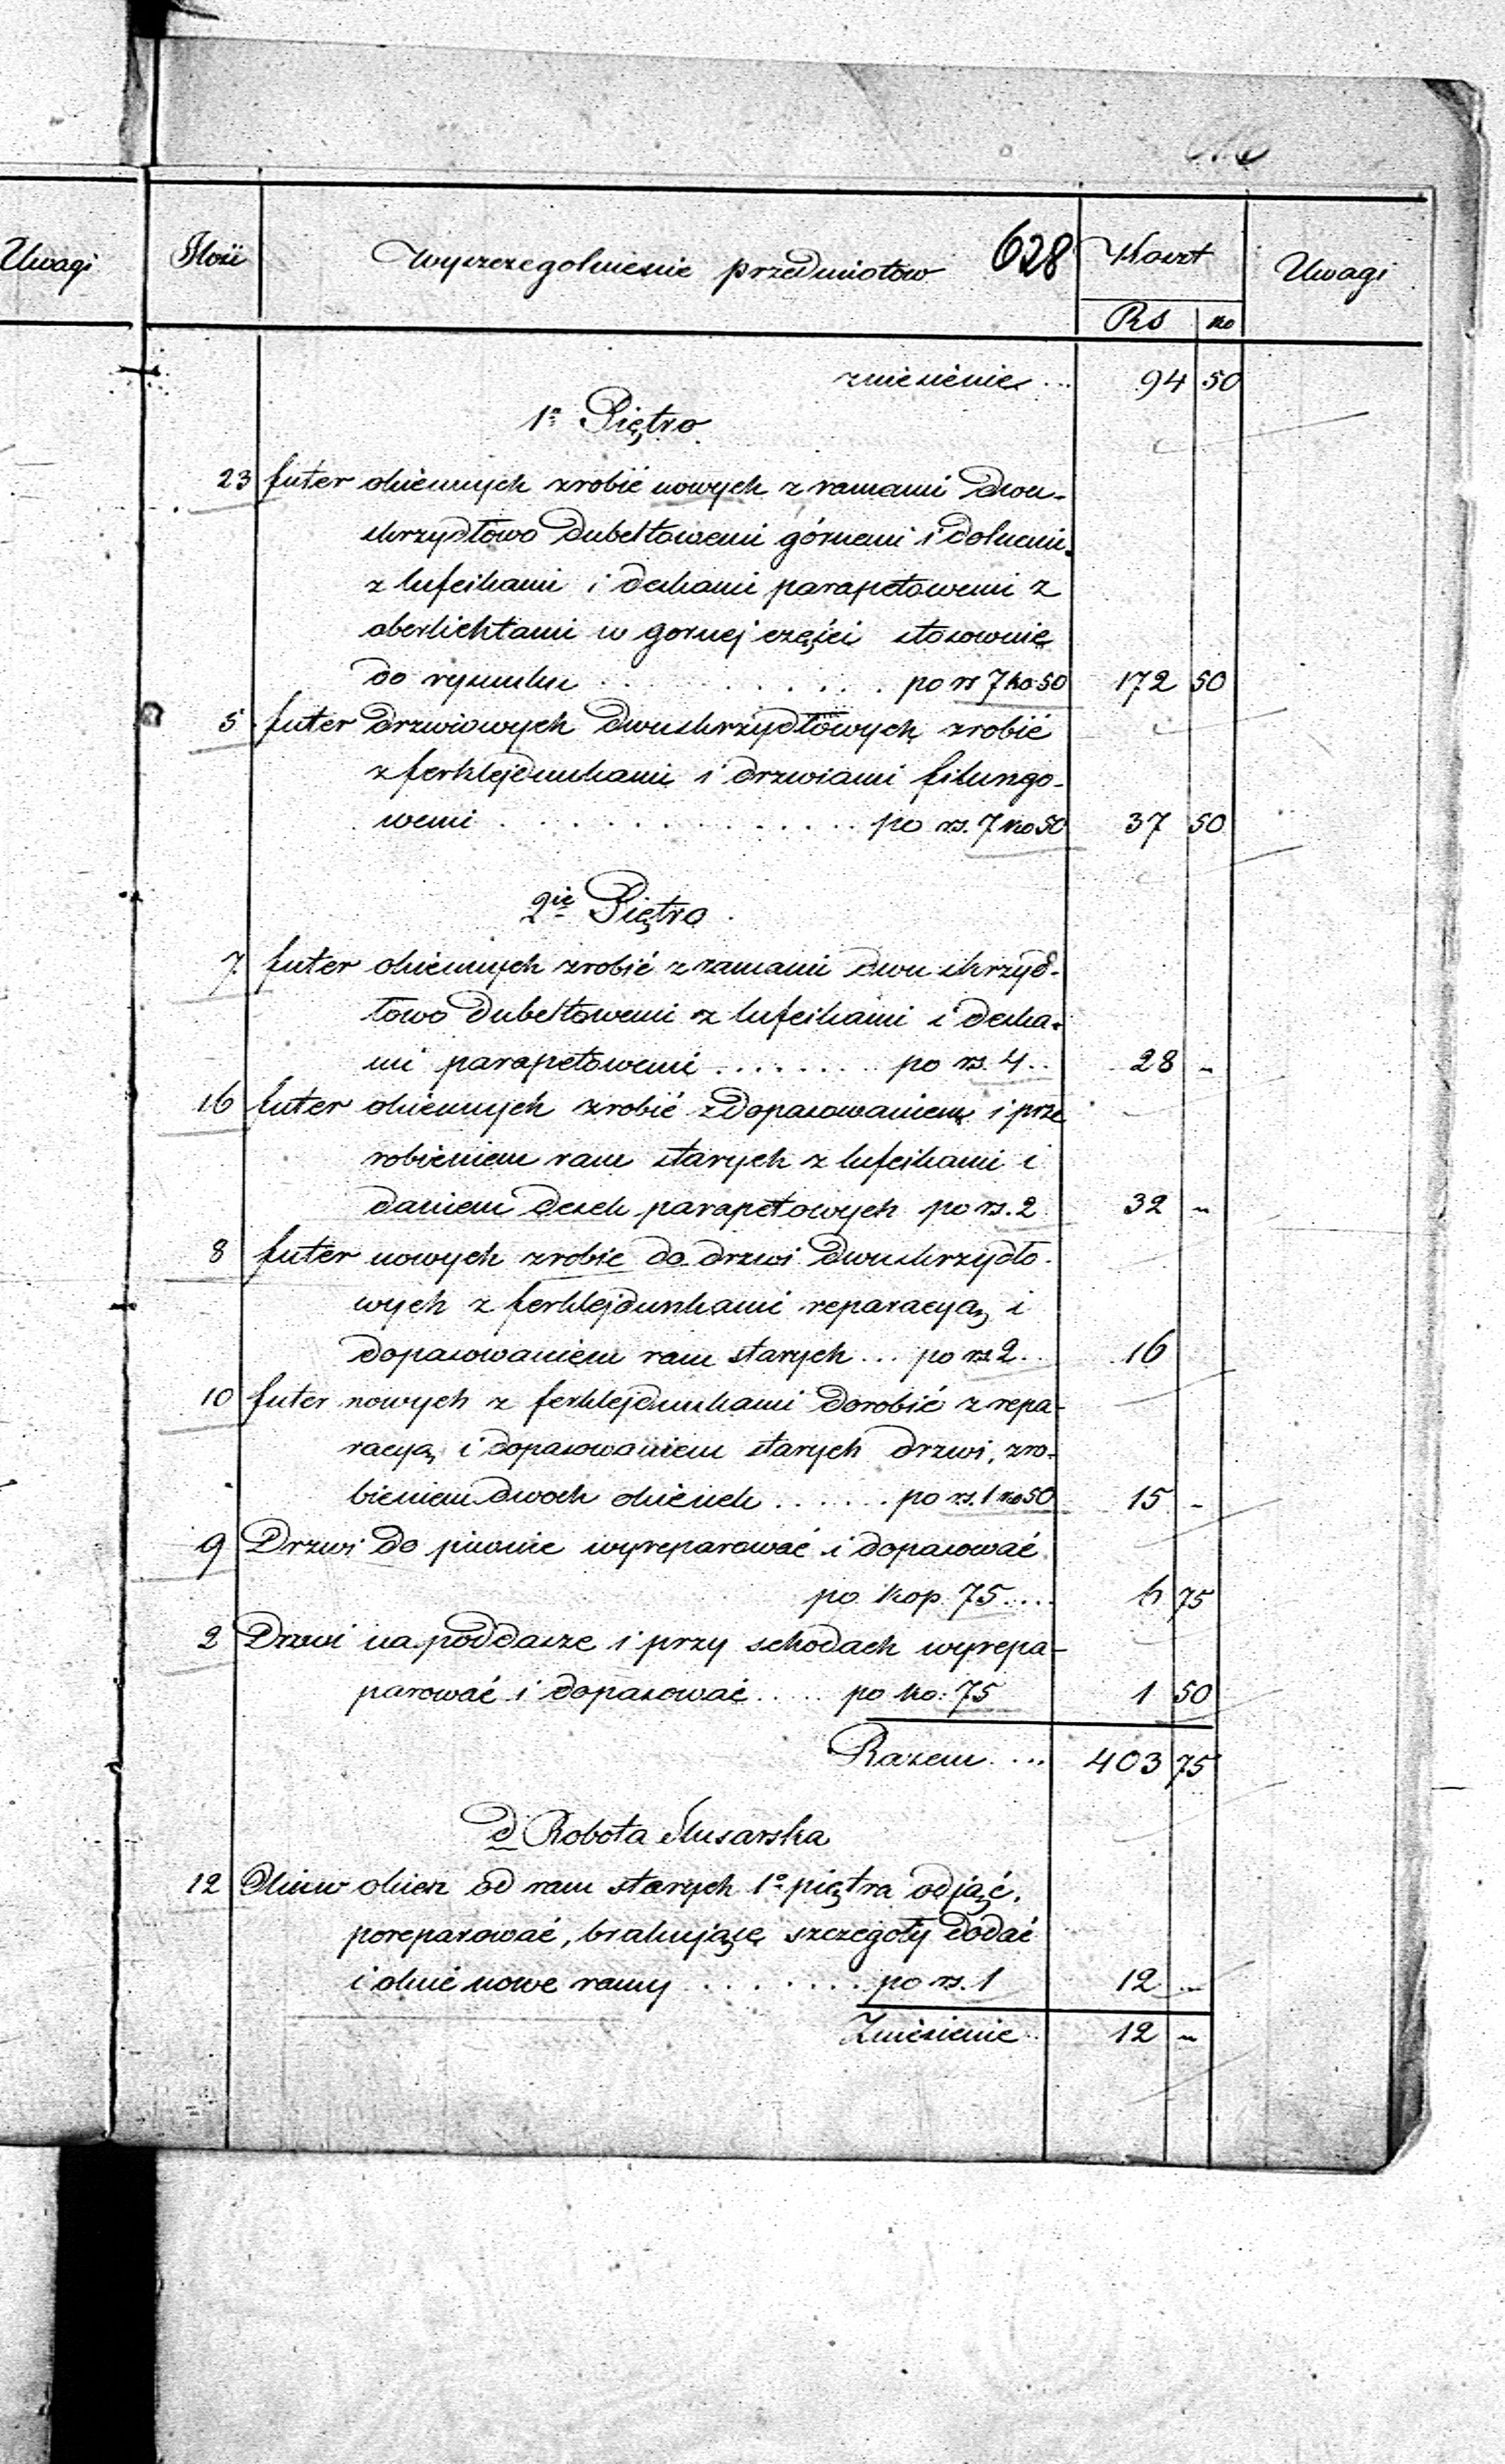 Uwagi
Ilość Wyszczegolnienie przedmiotow 628 Koszt Uwagi
Rs ko
zniesienie ... 94 50
1o Piętro
23 futer okiennych zrobić nowych z ramami dwu-
skrzydłowo dubeltowemi górnemi i dolnemi
z lufcikami i deskami parapetowemi z
oberlichtami w gornej części stosownie
do rysunku . . . . . . . po rs 7 ko 50 172 50
5 futer drzwiowych dwuskrzydłowych zrobić
z ferklejdunkami i drzwiami filungo-
wemi . . . . . . . . . po rs. 7 ko 50 37 50
2ie Piętro
7 futer okiennych zrobić z ramami dwu skrzyd-
łowo dubeltowemi z lufcikami i deska-
mi parapetowemi . . . . . . po rs. 4 .. 28 -
16 futer okiennych zrobić z dopasowaniem i prze
robieniem ram starych z lufcikami i
daniem desek parapetowych po rs. 2 32 -
8 futer nowych zrobic do drzwi dwuskrzydło-
wych z ferklejdunkami reparacyą i
dopasowaniem ram starych ... po rs 2 .. 16
10 futer nowych z ferklejdunkami dorobić z repa-
racyą i dopasowaniem starych drzwi, zro-
bieniem dwoch okienek . . . . . . po rs. 1 ko 50 15 -
9 Drzwi do piwnic wyreparować i dopasować
po kop. 75 .... 6 75
2 Drzwi na poddasze i przy schodach wyrepa-
parować i dopasować ..... po ko: 75 1 50
Razem .... 403 75
d Robota Ślusarska
12 Okuw okien od ram starych 1o piętra odjąć,
poreparować, brakujące szczegoły dodać
i okuć nowe ramy . . . . . . . po rs. 1 12 -
Zniesienie .. 12 -